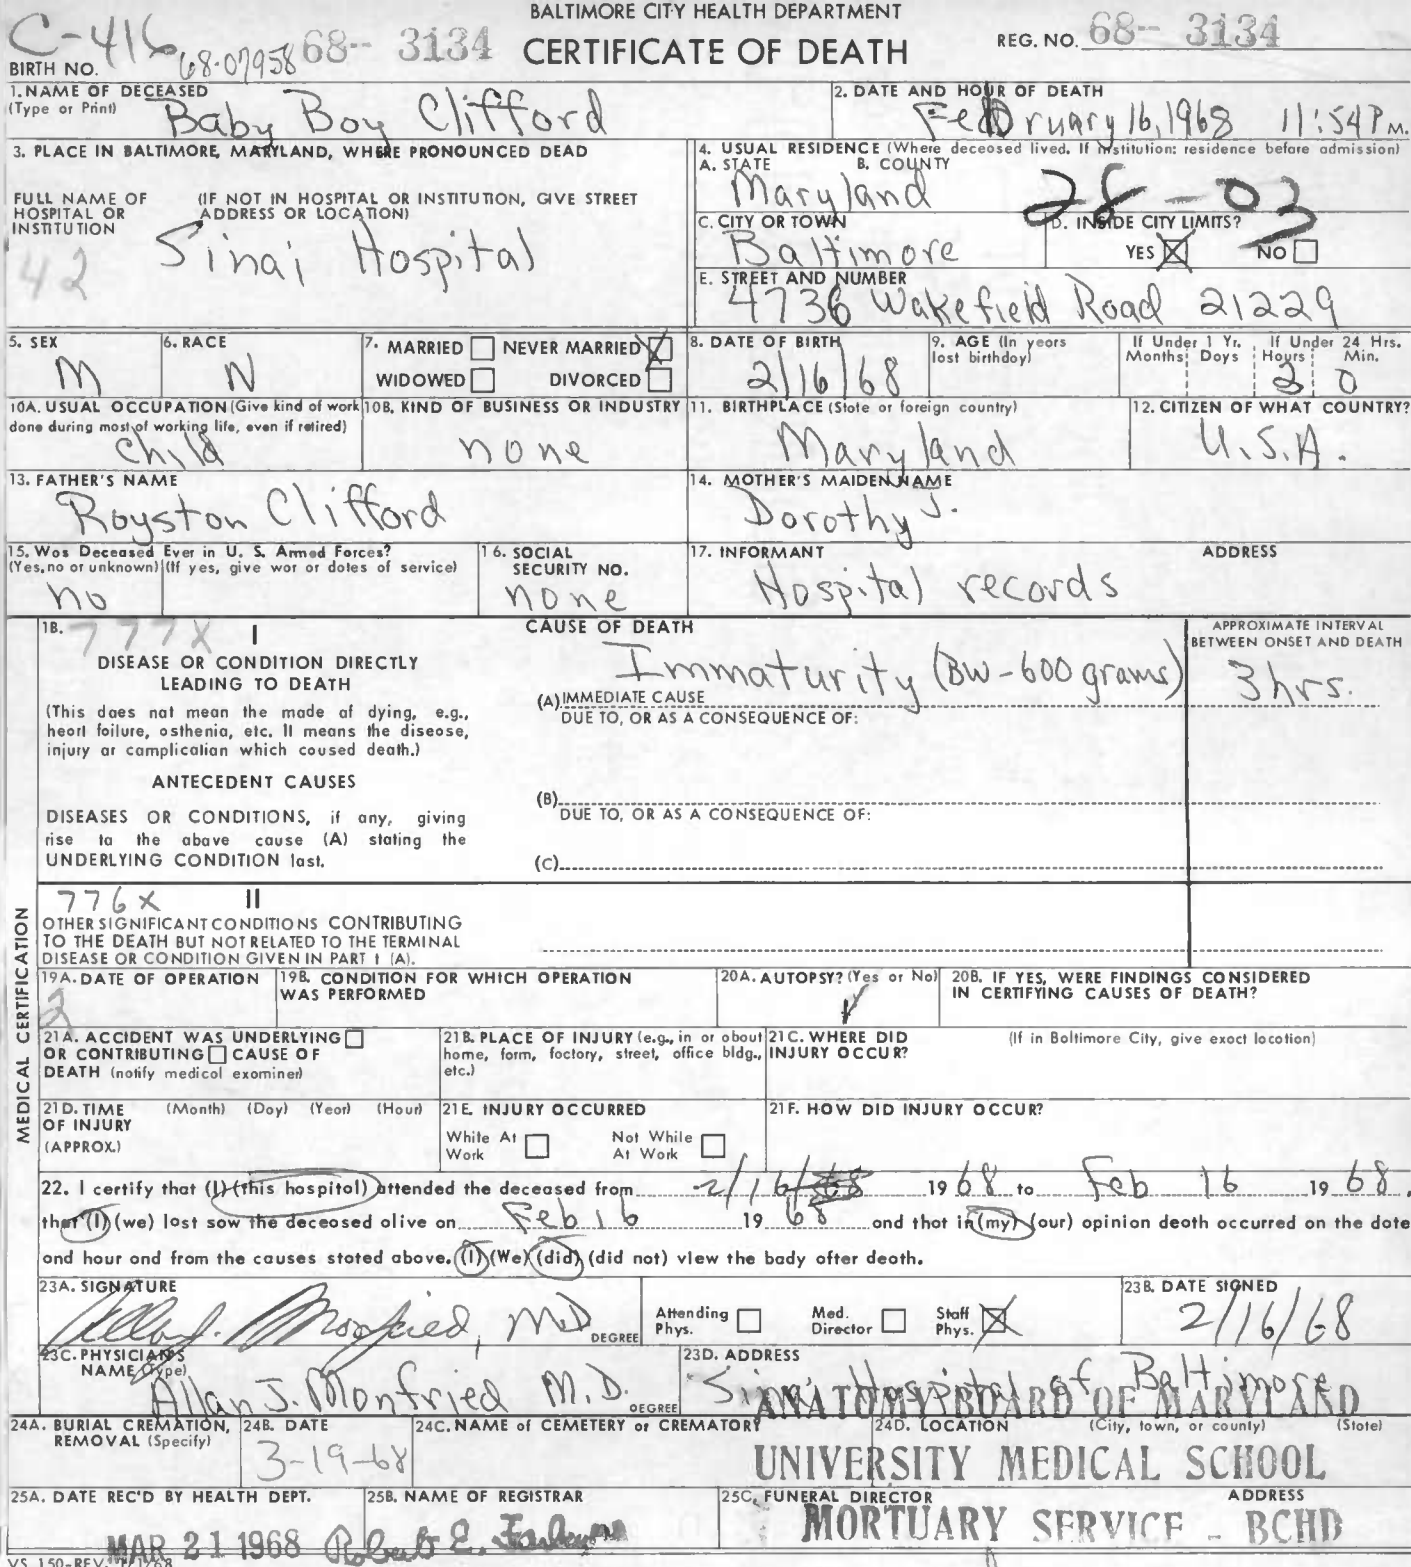 BALTIMORE CITY HEALTH DEPARTMENT
CERTIFICATE OF DEATH
C-416
68-07958
68-- 3134
BIRTH NO.
REG. NO. 68-- 3134
1. NAME OF DECEASED
(Type or Print)
Baby Boy Clifford
2. DATE AND HOUR OF DEATH
February 16, 1968 11:54 P M.
3. PLACE IN BALTIMORE, MARYLAND, WHERE PRONOUNCED DEAD
FULL NAME OF HOSPITAL OR INSTITUTION
(IF NOT IN HOSPITAL OR INSTITUTION, GIVE STREET ADDRESS OR LOCATION)
Sinai Hospital
42
4. USUAL RESIDENCE (Where deceased lived. If institution: residence before admission)
A. STATE B. COUNTY
Maryland 28-03
C. CITY OR TOWN
Baltimore
D. INSIDE CITY LIMITS?
YES NO
E. STREET AND NUMBER
4736 Wakefield Road 21229
5. SEX
M
6. RACE
N
7. MARRIED NEVER MARRIED
WIDOWED DIVORCED
8. DATE OF BIRTH
2/16/68
9. AGE (In years last birthday)
If Under 1 Yr. Months Days
If Under 24 Hrs. Hours Min.
2 0
10A. USUAL OCCUPATION (Give kind of work done during most of working life, even if retired)
Child
10B. KIND OF BUSINESS OR INDUSTRY
none
11. BIRTHPLACE (State or foreign country)
Maryland
12. CITIZEN OF WHAT COUNTRY?
U.S.A.
13. FATHER'S NAME
Royston Clifford
14. MOTHER'S MAIDEN NAME
Dorothy J.
15. Was Deceased Ever in U. S. Armed Forces?
(Yes, no or unknown) (If yes, give war or dates of service)
no
16. SOCIAL SECURITY NO.
none
17. INFORMANT ADDRESS
Hospital records
18. 777X I
DISEASE OR CONDITION DIRECTLY
LEADING TO DEATH
(This does not mean the mode of dying, e.g.,
heart failure, asthenia, etc. It means the disease,
injury or complication which caused death.)
ANTECEDENT CAUSES
DISEASES OR CONDITIONS, if any, giving
rise to the above cause (A) stating the
UNDERLYING CONDITION last.
CAUSE OF DEATH
Immaturity (BW-600 grams)
(A) IMMEDIATE CAUSE
DUE TO, OR AS A CONSEQUENCE OF:
(B)
DUE TO, OR AS A CONSEQUENCE OF:
(C)
APPROXIMATE INTERVAL
BETWEEN ONSET AND DEATH
3 hrs.
MEDICAL CERTIFICATION
776X II
OTHER SIGNIFICANT CONDITIONS CONTRIBUTING
TO THE DEATH BUT NOT RELATED TO THE TERMINAL
DISEASE OR CONDITION GIVEN IN PART I (A).
19A. DATE OF OPERATION
2
19B. CONDITION FOR WHICH OPERATION WAS PERFORMED
20A. AUTOPSY? (Yes or No)
20B. IF YES, WERE FINDINGS CONSIDERED IN CERTIFYING CAUSES OF DEATH?
21A. ACCIDENT WAS UNDERLYING
OR CONTRIBUTING CAUSE OF
DEATH (notify medical examiner)
21B. PLACE OF INJURY (e.g., in or about
home, farm, factory, street, office bldg.,
etc.)
21C. WHERE DID INJURY OCCUR?
(If in Baltimore City, give exact location)
21D. TIME OF INJURY (APPROX.)
(Month) (Day) (Year) (Hour)
21E. INJURY OCCURRED
While At Work
Not While At Work
21F. HOW DID INJURY OCCUR?
22. I certify that (I) (this hospital) attended the deceased from 2/16/68 1968 to Feb 16 1968,
that (I) (we) last saw the deceased alive on Feb 16 1968 and that in (my) (our) opinion death occurred on the date
and hour and from the causes stated above. (I) (We) (did) (did not) view the body after death.
23A. SIGNATURE
Allan J. Monfried, MD
DEGREE
Attending Phys.
Med. Director
Staff Phys.
23B. DATE SIGNED
2/16/68
23C. PHYSICIAN'S NAME (Type)
Allan J. Monfried M.D.
DEGREE
23D. ADDRESS
Sinai Hospital of Baltimore
ANATOMY BOARD OF MARYLAND
24A. BURIAL CREMATION, REMOVAL (Specify)
24B. DATE
3-19-68
24C. NAME of CEMETERY or CREMATORY
24D. LOCATION (City, town, or county) (State)
UNIVERSITY MEDICAL SCHOOL
25A. DATE REC'D BY HEALTH DEPT.
MAR 21 1968
25B. NAME OF REGISTRAR
Robert E. Farber
25C. FUNERAL DIRECTOR ADDRESS
MORTUARY SERVICE - BCHD
VS 150-REV. 1/1/68